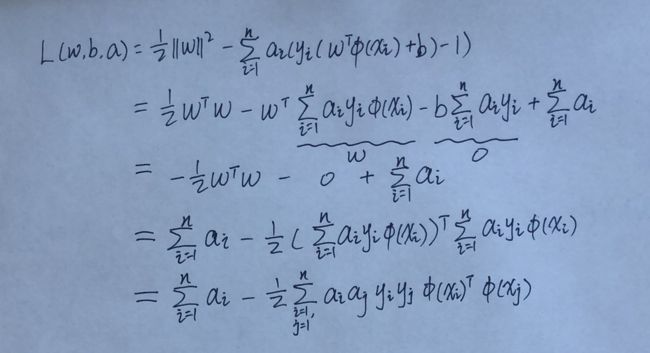 L(w,b,a) = ½||w||² - ∑ⁿᵢ₌₁ aᵢ(yᵢ(wᵀΦ(xᵢ)+b)-1)
= ½wᵀw - wᵀ ∑ⁿᵢ₌₁ aᵢyᵢΦ(xᵢ) - b∑ⁿᵢ₌₁ aᵢyᵢ + ∑ⁿᵢ₌₁ aᵢ
w 0
= -½wᵀw - 0 + ∑ⁿᵢ₌₁ aᵢ
= ∑ⁿᵢ₌₁ aᵢ - ½(∑ⁿᵢ₌₁ aᵢyᵢΦ(xᵢ))ᵀ ∑ⁿᵢ₌₁ aᵢyᵢΦ(xᵢ)
= ∑ⁿᵢ₌₁ aᵢ - ½∑ⁿᵢ₌₁,ⱼ₌₁ aᵢaⱼyᵢyⱼΦ(xᵢ)ᵀΦ(xⱼ)